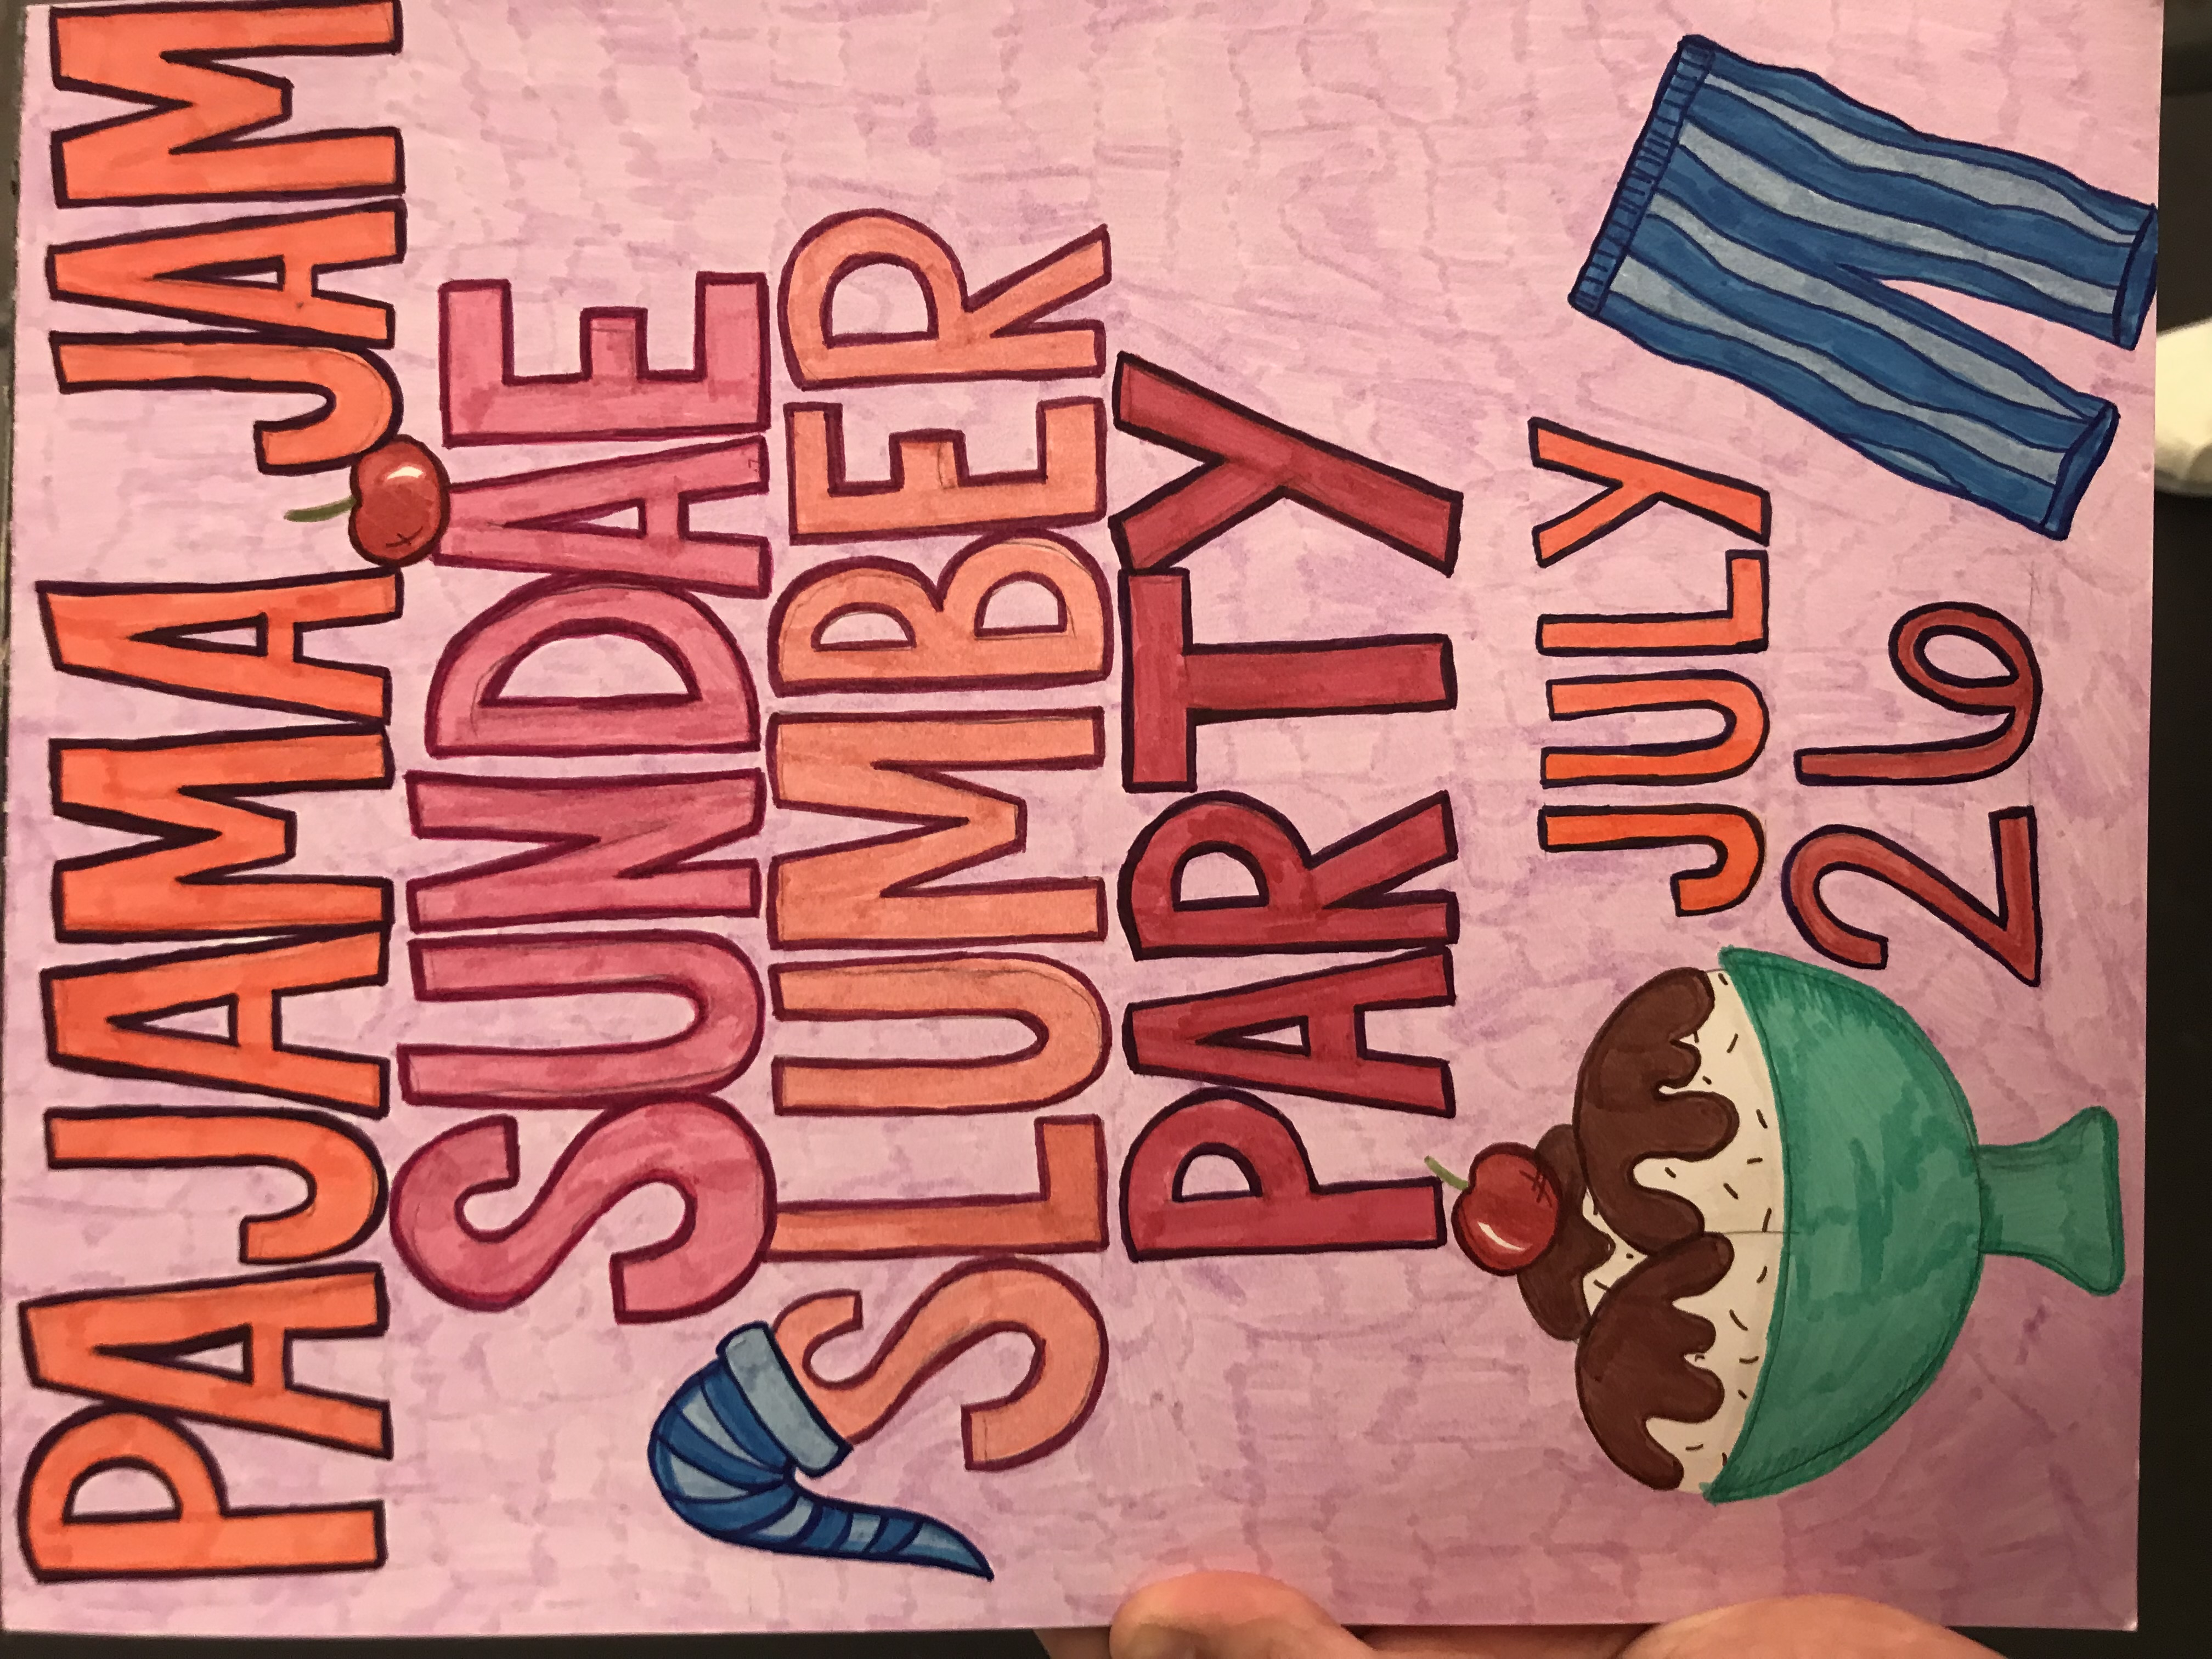 PAJAMA JAM
SUNDAE
SLUMBER
PARTY
JULY
26